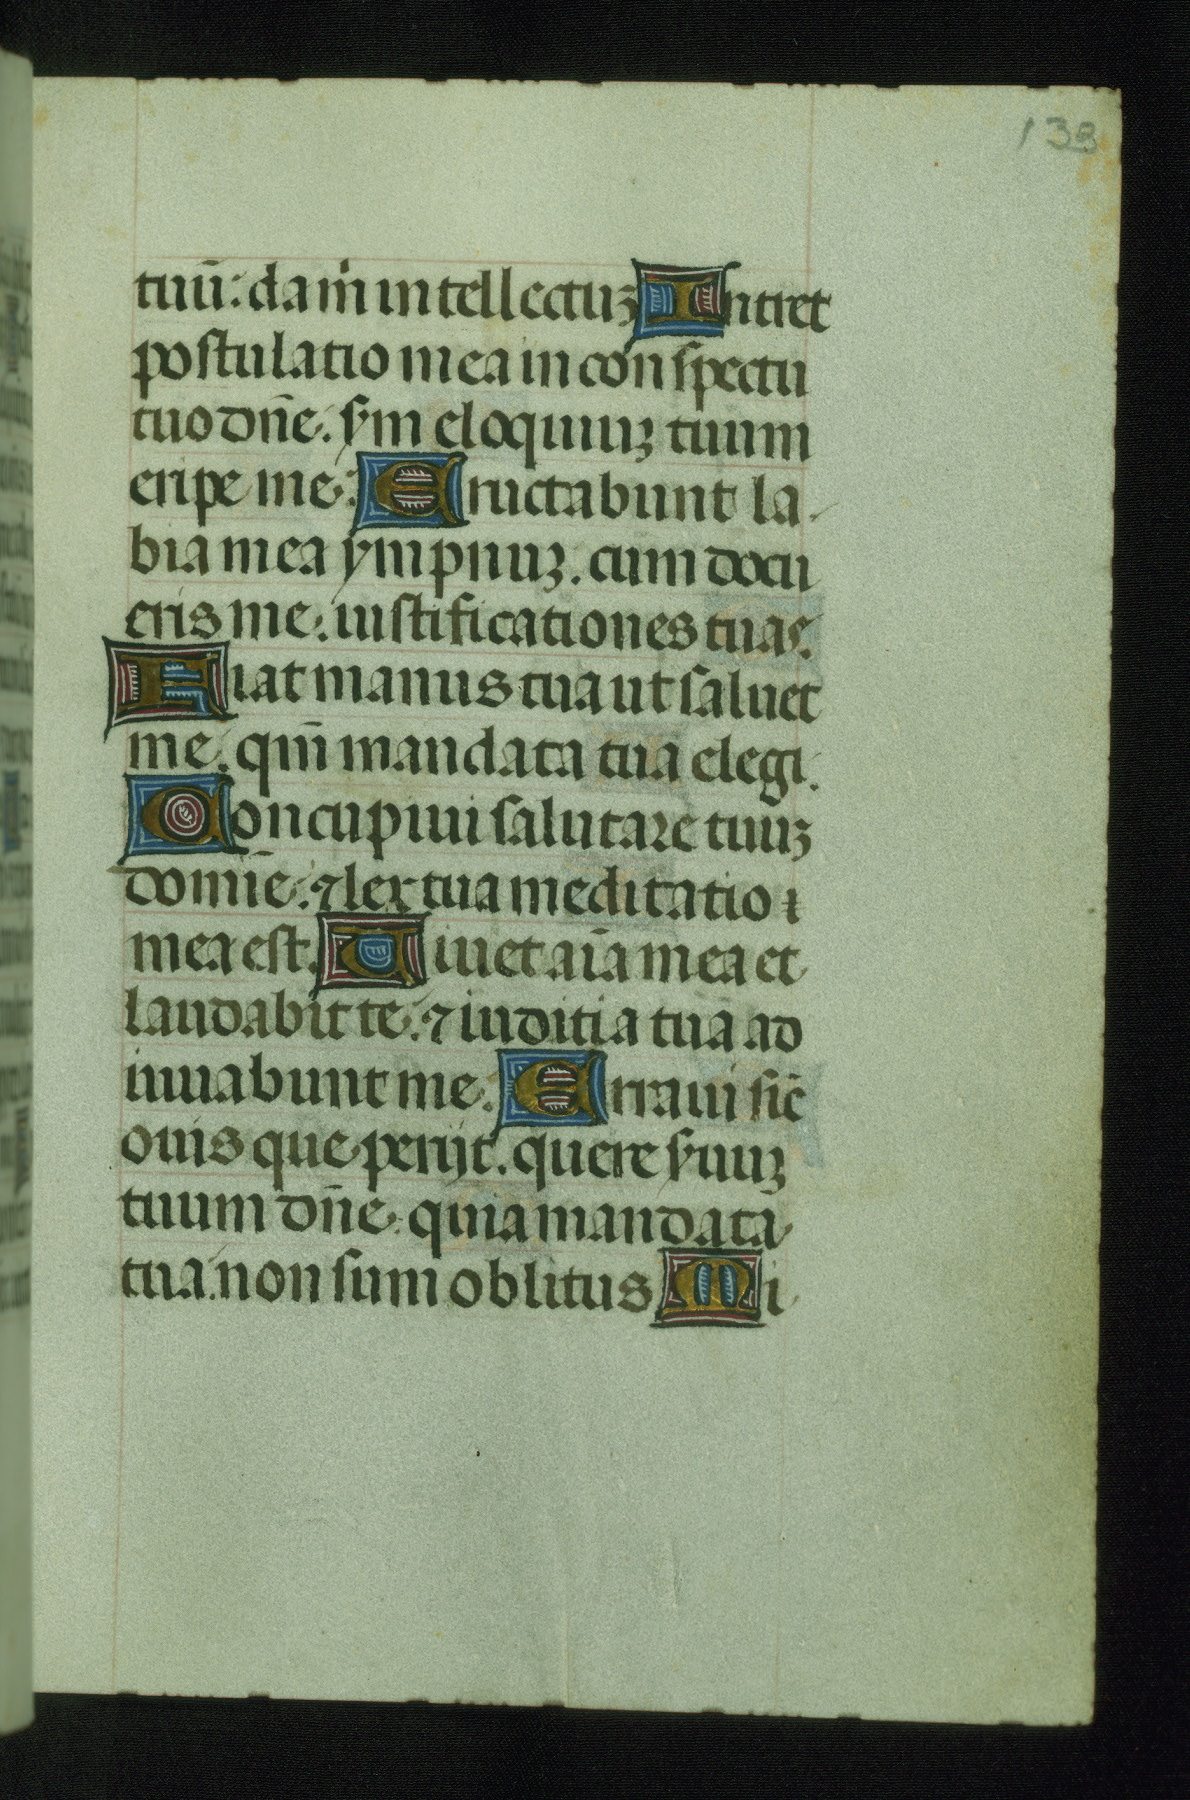 133
tuū: da m̄ intellectuꝫ Intret
postulatio mea in conspectu
tuo dn̄e. sʼm eloquiuꝫ tuum
eripe me: Eructabunt la-
bia mea ympnuꝫ. cum docu
eris me: iustificationes tuas.
Fiat manus tua ut saluet
me: qm̄ mandata tua elegi.
Concupiui salutare tuūꝫ
domīe: ⁊ lex tua meditatio
mea est. Viuet aīa mea et
laudabit te: ⁊ iuditia tua ad
iuuabunt me: Erraui sic̄
ouis que perijt. quere sʼuuꝫ
tuum dn̄e: quia mandata
tua. non sum oblitus Mi